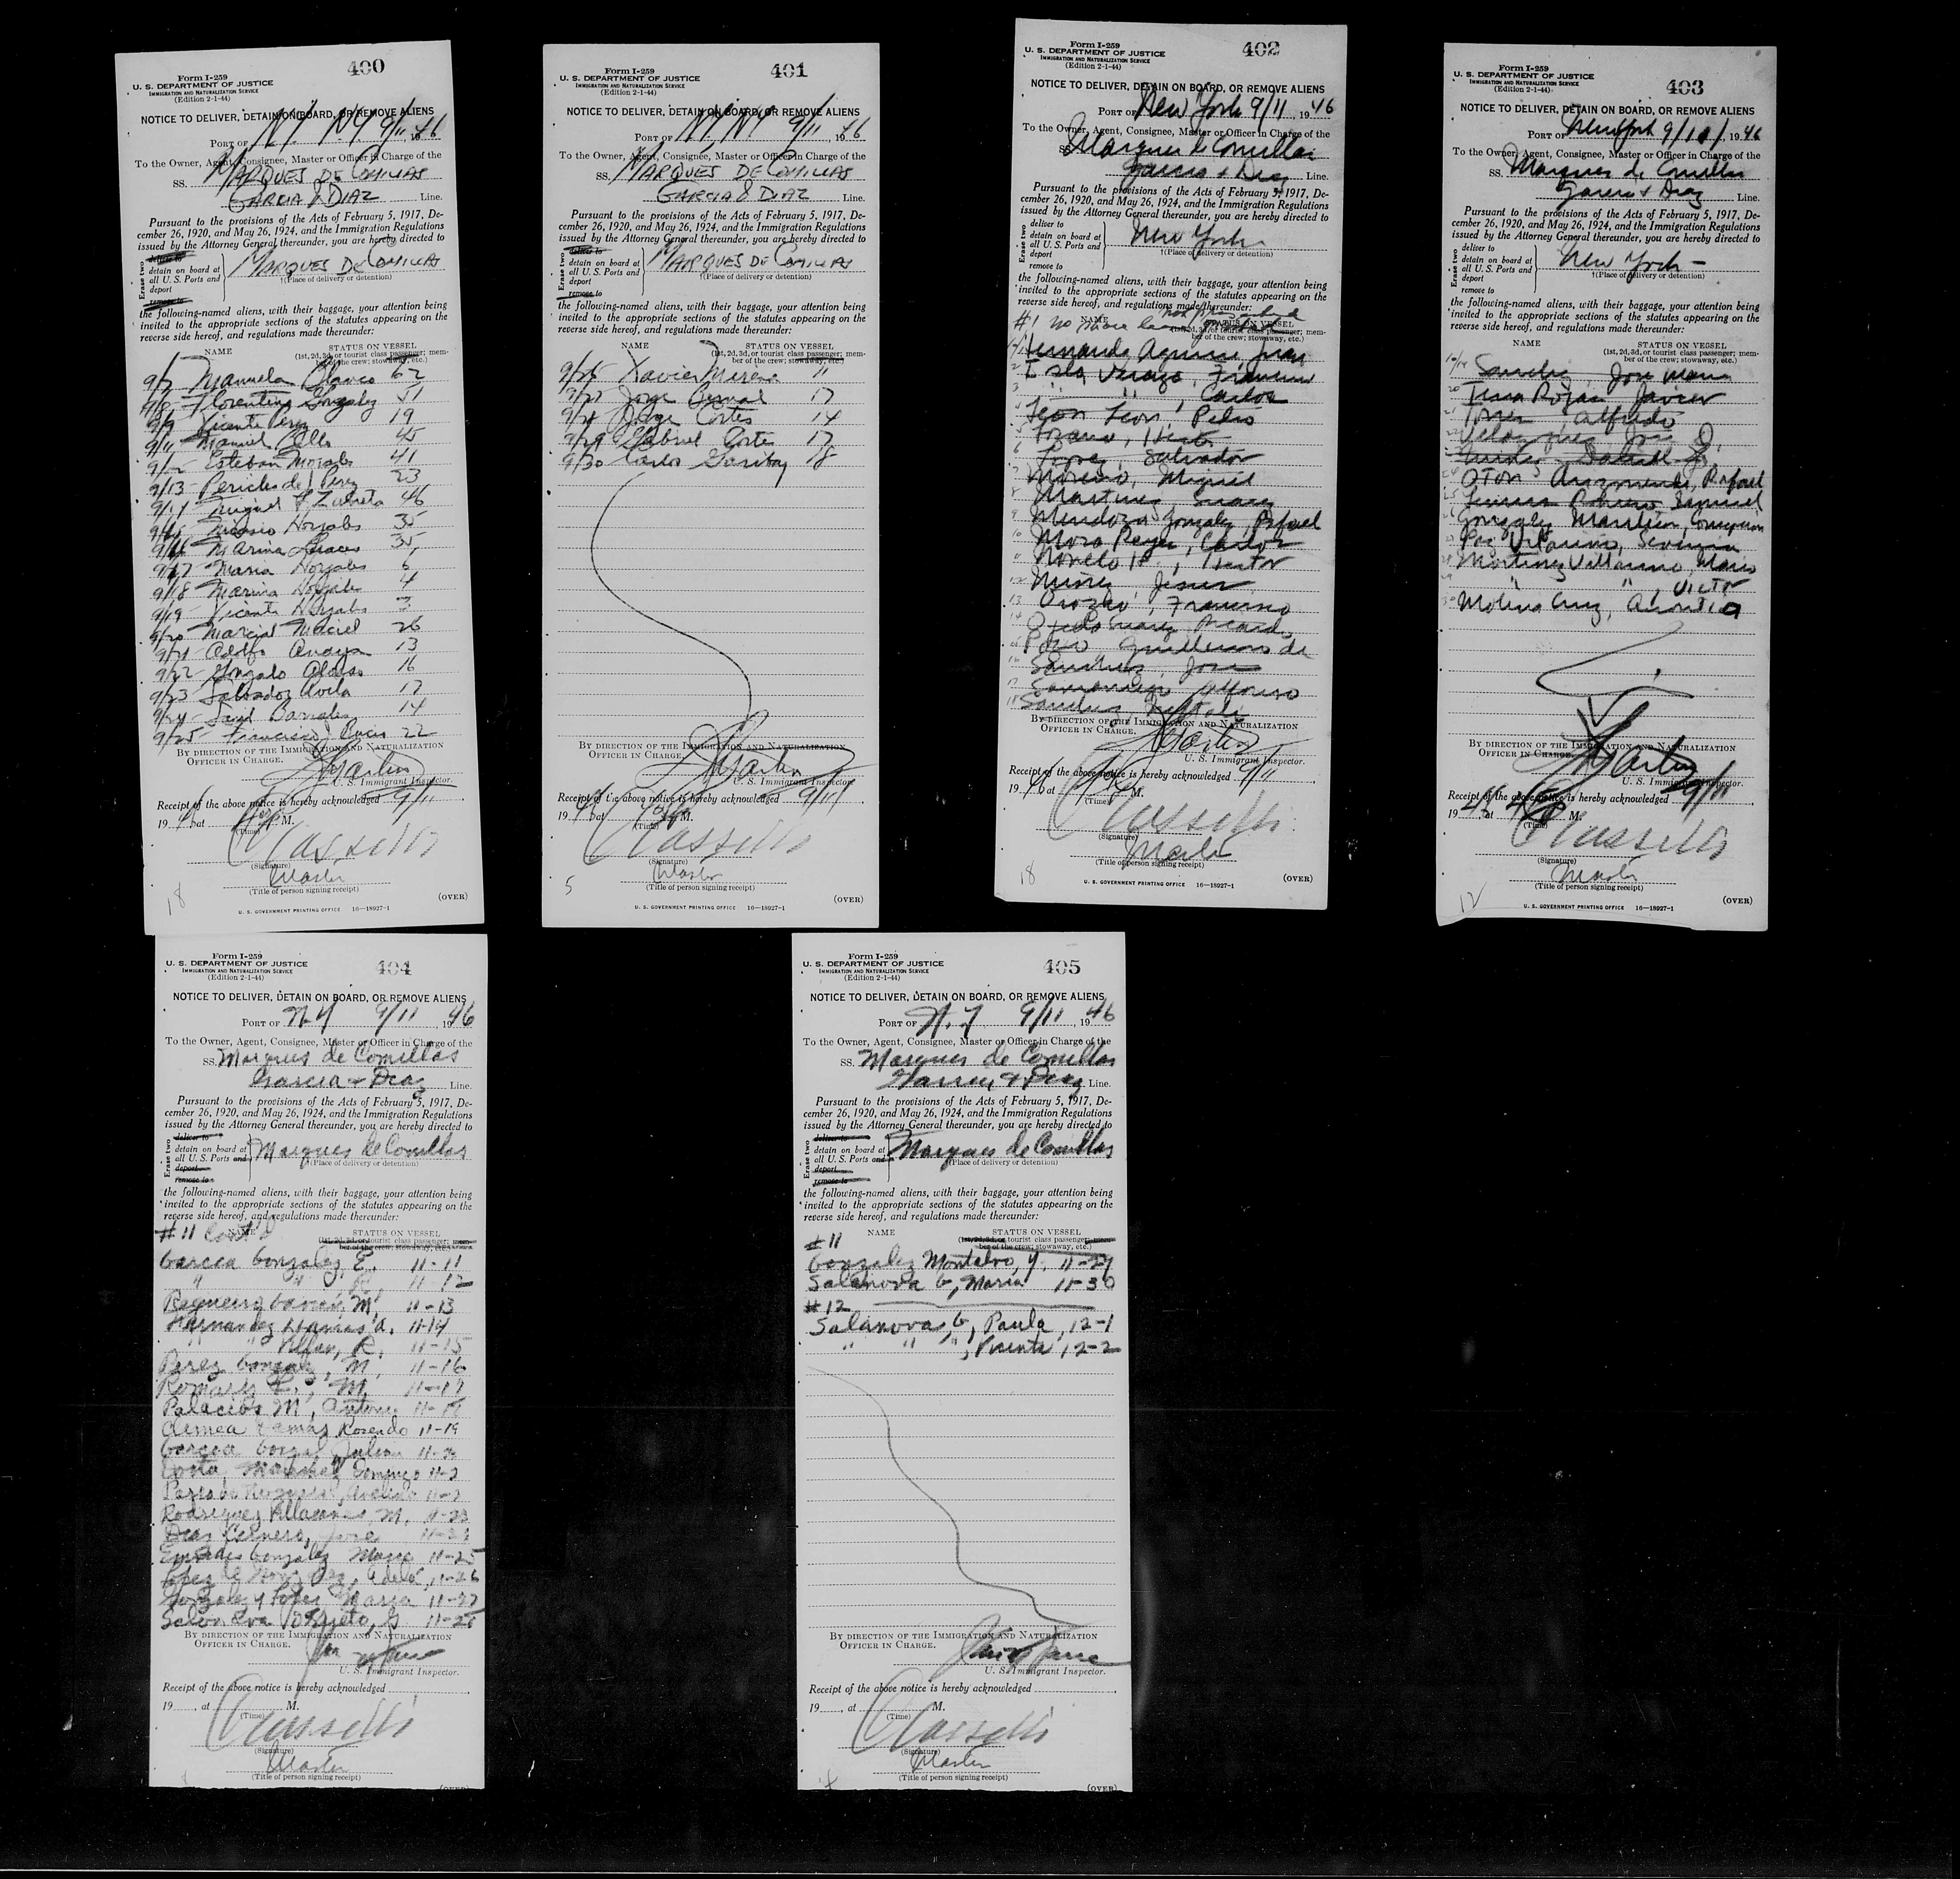 400
Form I-259
U. S. DEPARTMENT OF JUSTICE
IMMIGRATION AND NATURALIZATION SERVICE
(Edition 2-1-44)
NOTICE TO DELIVER, DETAIN ON BOARD, OR REMOVE ALIENS
PORT OF NY NY 9/11, 1946
To the Owner, Agent, Consignee, Master or Officer in Charge of the
SS. MARQUES DE COMILLAS
GARCIA & DIAZ Line.
Pursuant to the provisions of the Acts of February 5, 1917, De-
cember 26, 1920, and May 26, 1924, and the Immigration Regulations
issued by the Attorney General thereunder, you are hereby directed to
Erase two
deliver to
detain on board at
all U. S. Ports and
deport
remove to
MARQUES DE COMILLAS
†(Place of delivery or detention)
the following-named aliens, with their baggage, your attention being
invited to the appropriate sections of the statutes appearing on the
reverse side hereof, and regulations made thereunder:
NAME STATUS ON VESSEL
(1st, 2d, 3d, or tourist class passenger; mem-
ber of the crew; stowaway, etc.)
9/7 Manuela Blanco 62
9/8 Florentina Gonzalez 51
9/9 Vicente Perez 19
9/11 Manuel Calls 45
9/12 Esteban Morales 41
9/13 Pericles de J Perez 23
9/14 Miguel Zubieta 46
35
9/16 Marina 35
9/17 Maria 6
9/18 Marina 4
9/19 Vicente 3
9/20 Marcial Maciel 26
9/21 Adolfo Anaya 13
9/22 Gonzalo Alonso 16
9/23 Salvador Avila 17
9/24 14
9/25 Francisco 22
BY DIRECTION OF THE IMMIGRATION AND NATURALIZATION
OFFICER IN CHARGE.
U. S. Immigrant Inspector.
Receipt of the above notice is hereby acknowledged 9/11
1946 at M.
(Time)
(Signature)
Master
(Title of person signing receipt)
18
(OVER)
U. S. GOVERNMENT PRINTING OFFICE 16—18927-1
401
Form I-259
U. S. DEPARTMENT OF JUSTICE
IMMIGRATION AND NATURALIZATION SERVICE
(Edition 2-1-44)
NOTICE TO DELIVER, DETAIN ON BOARD, OR REMOVE ALIENS
PORT OF NY, NY 9/11, 1946
To the Owner, Agent, Consignee, Master or Officer in Charge of the
SS. MARQUES DE COMILLAS
GARCIA & DIAZ Line.
Pursuant to the provisions of the Acts of February 5, 1917, De-
cember 26, 1920, and May 26, 1924, and the Immigration Regulations
issued by the Attorney General thereunder, you are hereby directed to
Erase two
deliver to
detain on board at
all U. S. Ports and
deport
remove to
MARQUES DE COMILLAS
†(Place of delivery or detention)
the following-named aliens, with their baggage, your attention being
invited to the appropriate sections of the statutes appearing on the
reverse side hereof, and regulations made thereunder:
NAME STATUS ON VESSEL
(1st, 2d, 3d, or tourist class passenger; mem-
ber of the crew; stowaway, etc.)
9/26 Xavier Moreno 11
9/27 Jorge Bernal 17
9/28 Jorge Cortes 14
9/29 Gabriel Cortes 17
9/30 Carlos Garibay 18
BY DIRECTION OF THE IMMIGRATION AND NATURALIZATION
OFFICER IN CHARGE.
U. S. Immigrant Inspector.
Receipt of the above notice is hereby acknowledged 9/11
1946 at M.
(Time)
(Signature)
Master
(Title of person signing receipt)
5
(OVER)
U. S. GOVERNMENT PRINTING OFFICE 16—18927-1
402
Form I-259
U. S. DEPARTMENT OF JUSTICE
IMMIGRATION AND NATURALIZATION SERVICE
(Edition 2-1-44)
NOTICE TO DELIVER, DETAIN ON BOARD, OR REMOVE ALIENS
PORT OF New York 9/11, 1946
To the Owner, Agent, Consignee, Master or Officer in Charge of the
SS. Marques de Comillas
Garcia + Diaz Line.
Pursuant to the provisions of the Acts of February 5, 1917, De-
cember 26, 1920, and May 26, 1924, and the Immigration Regulations
issued by the Attorney General thereunder, you are hereby directed to
Erase two
deliver to
detain on board at
all U. S. Ports and
deport
remove to
New York
†(Place of delivery or detention)
the following-named aliens, with their baggage, your attention being
invited to the appropriate sections of the statutes appearing on the
reverse side hereof, and regulations made thereunder:
#1 no
NAME STATUS ON VESSEL
(1st, 2d, 3d, or tourist class passenger; mem-
ber of the crew; stowaway, etc.)
Juan
2 Isla Francisco
3 " " , Carlos
4 Leon Leon, Pedro
5
6 Lopez, Salvador
7 Moreno, Miguel
8 Martinez
9 Mendoza Gonzalez, Rafael
10 Mora Reyes, Carlos
11 Hector
12 Nuñez, Jesus
13 Orozko, Francisco
14 Ricardo
15 Guillermo de
16 Sanchez, Jose
17 Alfonso
18 Sanchez
BY DIRECTION OF THE IMMIGRATION AND NATURALIZATION
OFFICER IN CHARGE.
U. S. Immigrant Inspector.
Receipt of the above notice is hereby acknowledged 9/11
1946 at M.
(Time)
(Signature)
Master
(Title of person signing receipt)
18
(OVER)
U. S. GOVERNMENT PRINTING OFFICE 16—18927-1
403
Form I-259
U. S. DEPARTMENT OF JUSTICE
IMMIGRATION AND NATURALIZATION SERVICE
(Edition 2-1-44)
NOTICE TO DELIVER, DETAIN ON BOARD, OR REMOVE ALIENS
PORT OF New York 9/11, 1946
To the Owner, Agent, Consignee, Master or Officer in Charge of the
SS. Marques de Comillas
Garcia + Diaz Line.
Pursuant to the provisions of the Acts of February 5, 1917, De-
cember 26, 1920, and May 26, 1924, and the Immigration Regulations
issued by the Attorney General thereunder, you are hereby directed to
Erase two
deliver to
detain on board at
all U. S. Ports and
deport
remove to
New York
†(Place of delivery or detention)
the following-named aliens, with their baggage, your attention being
invited to the appropriate sections of the statutes appearing on the
reverse side hereof, and regulations made thereunder:
NAME STATUS ON VESSEL
(1st, 2d, 3d, or tourist class passenger; mem-
ber of the crew; stowaway, etc.)
Sanchez, Jose Maria
20 Rojas Javier
21 Torres, Alfredo
22 Velazquez Jose
24 Oton Rafael
25 Romero Samuel
26 Gonzalez Concepcion
27 Vilarino, Severina
28 Martinez Villarino, Mario
29 " " , Victor
30 Molina Cruz,
BY DIRECTION OF THE IMMIGRATION AND NATURALIZATION
OFFICER IN CHARGE.
U. S. Immigrant Inspector.
Receipt of the above notice is hereby acknowledged 9/11
1946 at M.
(Time)
(Signature)
Master
(Title of person signing receipt)
12
(OVER)
U. S. GOVERNMENT PRINTING OFFICE 16—18927-1
404
Form I-259
U. S. DEPARTMENT OF JUSTICE
IMMIGRATION AND NATURALIZATION SERVICE
(Edition 2-1-44)
NOTICE TO DELIVER, DETAIN ON BOARD, OR REMOVE ALIENS
PORT OF N.Y 9/11, 1946
To the Owner, Agent, Consignee, Master or Officer in Charge of the
SS. Marques de Comillas
Garcia + Diaz Line.
Pursuant to the provisions of the Acts of February 5, 1917, De-
cember 26, 1920, and May 26, 1924, and the Immigration Regulations
issued by the Attorney General thereunder, you are hereby directed to
Erase two
deliver to
detain on board at
all U. S. Ports and
deport
remove to
Marques de Comillas
†(Place of delivery or detention)
the following-named aliens, with their baggage, your attention being
invited to the appropriate sections of the statutes appearing on the
reverse side hereof, and regulations made thereunder:
#11 Cont'd
NAME STATUS ON VESSEL
(1st, 2d, 3d, or tourist class passenger; mem-
ber of the crew; stowaway, etc.)
Garcia Gonzalez, E. 11-11
" " 11-12
Regueiro Garcia, M. 11-13
Hernandez Llamas A. 11-14
" Villar, R. 11-15
Perez Gonzalez, M. 11-16
M. 11-17
Palacios M, Antonio 11-18
Rosendo 11-19
Garcia Gonzal, Julian
Costa, Domingo
Avelino
Rodriguez M. 11-23
Dias Cisnero, Jose
Gonzalez Maria 11-25
Lopez de Gonzalez, Adela, 11-26
Gonzalez y Lopez Maria 11-27
Prieto, G. 11-28
BY DIRECTION OF THE IMMIGRATION AND NATURALIZATION
OFFICER IN CHARGE.
U. S. Immigrant Inspector.
Receipt of the above notice is hereby acknowledged
19 , at M.
(Time)
(Signature)
Master
(Title of person signing receipt)
(OVER)
405
Form I-259
U. S. DEPARTMENT OF JUSTICE
IMMIGRATION AND NATURALIZATION SERVICE
(Edition 2-1-44)
NOTICE TO DELIVER, DETAIN ON BOARD, OR REMOVE ALIENS
PORT OF N.Y. 9/11, 1946
To the Owner, Agent, Consignee, Master or Officer in Charge of the
SS. Marques de Comillas
Garcia & Diaz Line.
Pursuant to the provisions of the Acts of February 5, 1917, De-
cember 26, 1920, and May 26, 1924, and the Immigration Regulations
issued by the Attorney General thereunder, you are hereby directed to
Erase two
deliver to
detain on board at
all U. S. Ports and
deport
remove to
Marques de Comillas
†(Place of delivery or detention)
the following-named aliens, with their baggage, your attention being
invited to the appropriate sections of the statutes appearing on the
reverse side hereof, and regulations made thereunder:
NAME STATUS ON VESSEL
(1st, 2d, 3d, or tourist class passenger; mem-
ber of the crew; stowaway, etc.)
#11
Gonzalez Montalvo, Y. 11-29
Salanova G, Maria 11-30
#12
Salanova, G, Paula, 12-1
" " " , Vicente, 12-2
BY DIRECTION OF THE IMMIGRATION AND NATURALIZATION
OFFICER IN CHARGE.
U. S. Immigrant Inspector.
Receipt of the above notice is hereby acknowledged
19 , at M.
(Time)
(Signature)
Master
(Title of person signing receipt)
(OVER)